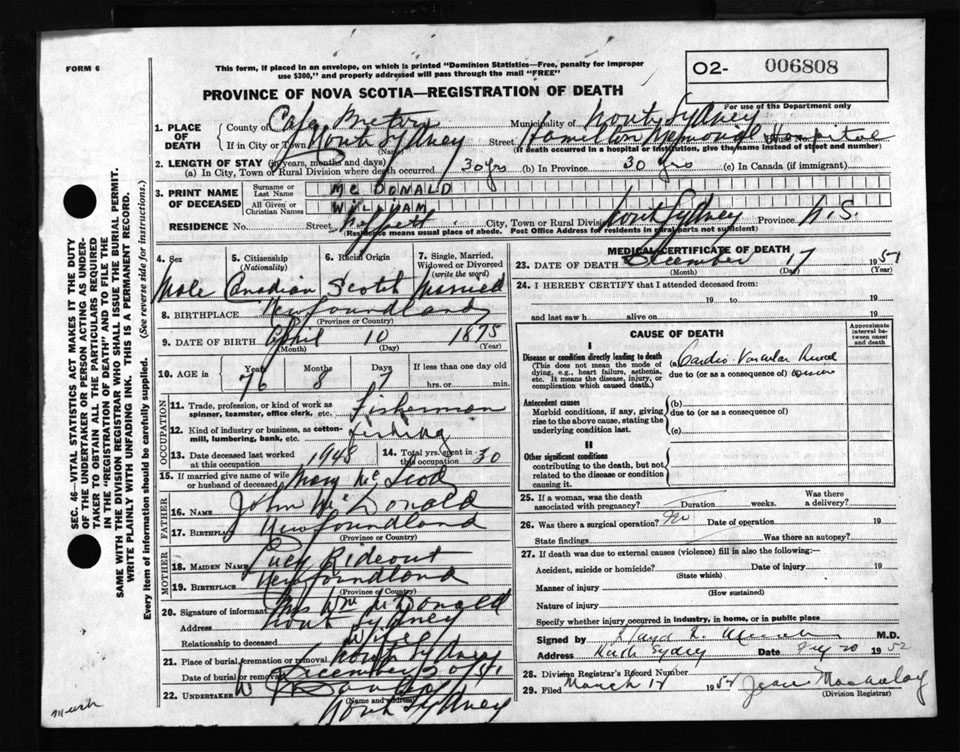 FORM 6
This form, if placed in an envelope, on which is printed "Dominion Statistics—Free, penalty for improper
use $300," and properly addressed will pass through the mail "FREE"
O2- 006808
For use of the Department only
PROVINCE OF NOVA SCOTIA—REGISTRATION OF DEATH
1. PLACE OF DEATH
County of Cape Breton Municipality of North Sydney
If in City or Town North Sydney Street Hamilton Memorial Hospital
(Name) (If death occurred in a hospital or institution, give the name instead of street and number)
2. LENGTH OF STAY (in years, months and days)
(a) In City, Town or Rural Division where death occurred 30 yrs (b) In Province 30 yrs (c) In Canada (if immigrant)
3. PRINT NAME OF DECEASED
Surname or Last Name MC DONALD
All Given or Christian Names WILLIAM
RESIDENCE No. Street City, Town or Rural Division North Sydney Province N.S.
(Residence means usual place of abode. Post Office Address for residents in rural parts not sufficient)
4. Sex Male
5. Citizenship (Nationality) Canadian
6. Racial Origin Scotch
7. Single, Married, Widowed or Divorced (write the word) Married
8. BIRTHPLACE Newfoundland
(Province or Country)
9. DATE OF BIRTH April 10 1875
(Month) (Day) (Year)
10. AGE in Years 76 Months 8 Days 7 If less than one day old
hrs. or min.
OCCUPATION
11. Trade, profession, or kind of work as spinner, teamster, office clerk, etc. Fisherman
12. Kind of industry or business, as cotton-mill, lumbering, bank, etc. fishing
13. Date deceased last worked at this occupation 1948
14. Total yrs. spent in this occupation 30
15. If married give name of wife or husband of deceased Mary McLeod
FATHER
16. Name John McDonald
17. Birthplace Newfoundland
(Province or Country)
MOTHER
18. MAIDEN NAME Lucy Rideout
19. BIRTHPLACE Newfoundland
(Province of Country)
20. Signature of informant Mrs Wm McDonald
Address North Sydney
Relationship to deceased Wife
21. Place of burial, cremation or removal North Sydney
Date of burial or removal December 20/51
22. UNDERTAKER
(Name and Address)
North Sydney
MEDICAL CERTIFICATE OF DEATH
23. DATE OF DEATH December 17 1951
(Month) (Day) (Year)
24. I HEREBY CERTIFY that I attended deceased from:
19 to 19
and last saw h alive on 19
CAUSE OF DEATH
Approximate interval between onset and death
I
Disease or condition directly leading to death
(This does not mean the mode of dying, e.g., heart failure, asthenia, etc. It means the disease, injury, or complication which caused death.)
(a) Cardio-Vascular Renal
due to (or as a consequence of)
Antecedent causes
Morbid conditions, if any, giving rise to the above cause, stating the underlying condition last.
(b)
due to (or as a consequence of)
(c)
II
Other significant conditions
contributing to the death, but not related to the disease or condition causing it.
25. If a woman, was the death associated with pregnancy? Duration weeks. Was there a delivery?
26. Was there surgical operation? No Date of operation 19
State findings Was there an autopsy?
27. If death was due to external causes (violence) fill in also the following:—
Accident, suicide or homicide? Date of injury 19
(State which)
Manner of injury
(How sustained)
Nature of injury
Specify whether injury occurred in industry, in home, or in public place
Signed by M.D.
Address North Sydney Date 20 1952
28. Division Registrar's Record Number
29. Filed March 1952
(Division Registrar)
SEC. 46—VITAL STATISTICS ACT MAKES IT THE DUTY
OF THE UNDERTAKER OR PERSON ACTING AS UNDER-
TAKER TO OBTAIN ALL THE PARTICULARS REQUIRED
IN THE "REGISTRATION OF DEATH" AND TO FILE THE
SAME WITH THE DIVISION REGISTRAR WHO SHALL ISSUE THE BURIAL PERMIT.
WRITE PLAINLY WITH UNFADING INK. THIS IS A PERMANENT RECORD.
Every item of information should be carefully supplied. (See reverse side for instructions.)